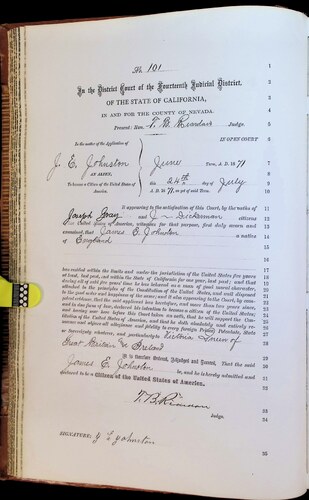 No. 101
1
In the District Court of the Fourteenth Judicial District. 2
OF THE STATE OF CALIFORNIA, 3
IN AND FOR THE COUNTY OF NEVADA. 4
Present: Hon. T. B. Reardan Judge. 5
In the matter of the Application of IN OPEN COURT 6
J. E. Johnston June Term, A. D. 1871 7
AN ALIEN, 8
To become a Citizen of the United States of this 24th day of July 9
America. A. D. 1871, as yet of said Term. 10
It appearing to the satisfaction of this Court, by the oaths of 11
Joseph Gray and J. Dickerman citizens 12
of the United States of America, witnesses for that purpose, first duly sworn and 13
examined, that James E. Johnston a native 14
of England 15
16
has resided within the limits and under the jurisdiction of the United States five years 17
at least, last past, and within the State of California for one year, last past; and that 18
during all of said five years' time he has behaved as a man of good moral character, 19
attached to the principles of the Constitution of the United States, and well disposed 20
to the good order and happiness of the same; and it also appearing to the Court, by com- 21
petent evidence, that the said applicant has heretofore, and more than two years since, 22
and in due form of law, declared his intention to become a citizen of the United States; 23
and having now here before this Court taken an oath, that he will support the Consti- 24
tution of the United States of America, and that he doth absolutely and entirely re- 25
nounce and abjure all allegiance and fidelity to every foreign Prince, Potentate, State 26
or Sovereignty whatever, and particularly to Victoria Queen of 27
Great Britain & Ireland 28
It is therefore Ordered, Adjudged and Decreed, That the said 29
James E. Johnston be, and he is hereby admitted and 30
declared to be a Citizen of the United States of America. 31
32
T. B. Reardan 33
Judge. 34
SIGNATURE, J E Johnston
35